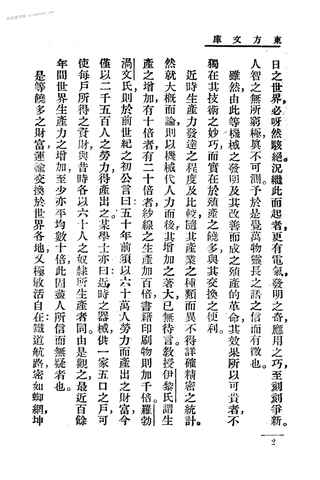 東方文庫
日之世界必呀然駭絕。況繼此而起者更有電氣發明之奇應用之巧至刻刻爭新。
人智之無所窮極眞不可測予於是覺萬物靈長之語之信而有徵也。
雖然由此等機械之發明及其改善而成之殖產的革命其效果所以可貴者不
獨在其技術之妙巧而實在於殖產之饒多與其交換之便利。
近時生產力發達之程度及比較隨其產業之種類而異不得詳確精密之統計。
然就大概而論則以機械代人力而後其增加之著大已無待言教授伊黎氏謂生
產之增加有十倍者有二十倍者紗線之生產加百倍書籍印刷物則加千倍。羅勃
渦文氏則於前世紀之初公言曰五十年前須以六十萬人勞力而產出之財富今
僅以二千五百人之勞力得產出之某學士亦曰近時之器械供一家五口之戶可
使每戶所得之資財與昔時各以六十人之奴隸所生產者同。由是觀之最近百餘
年間世界生產力之增加至少亦平均數十倍此固盡人所信而無疑者也。
是等饒多之財富運輸交換於世界各地又極敏活自在鐵道航路密如蜘網坤
2